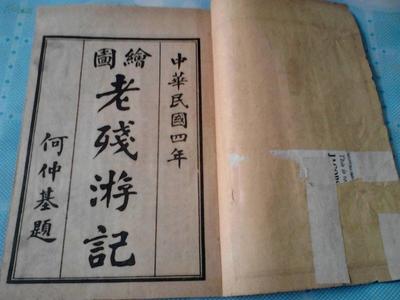 中華民國四年
繪圖
老残游記
何仲基題